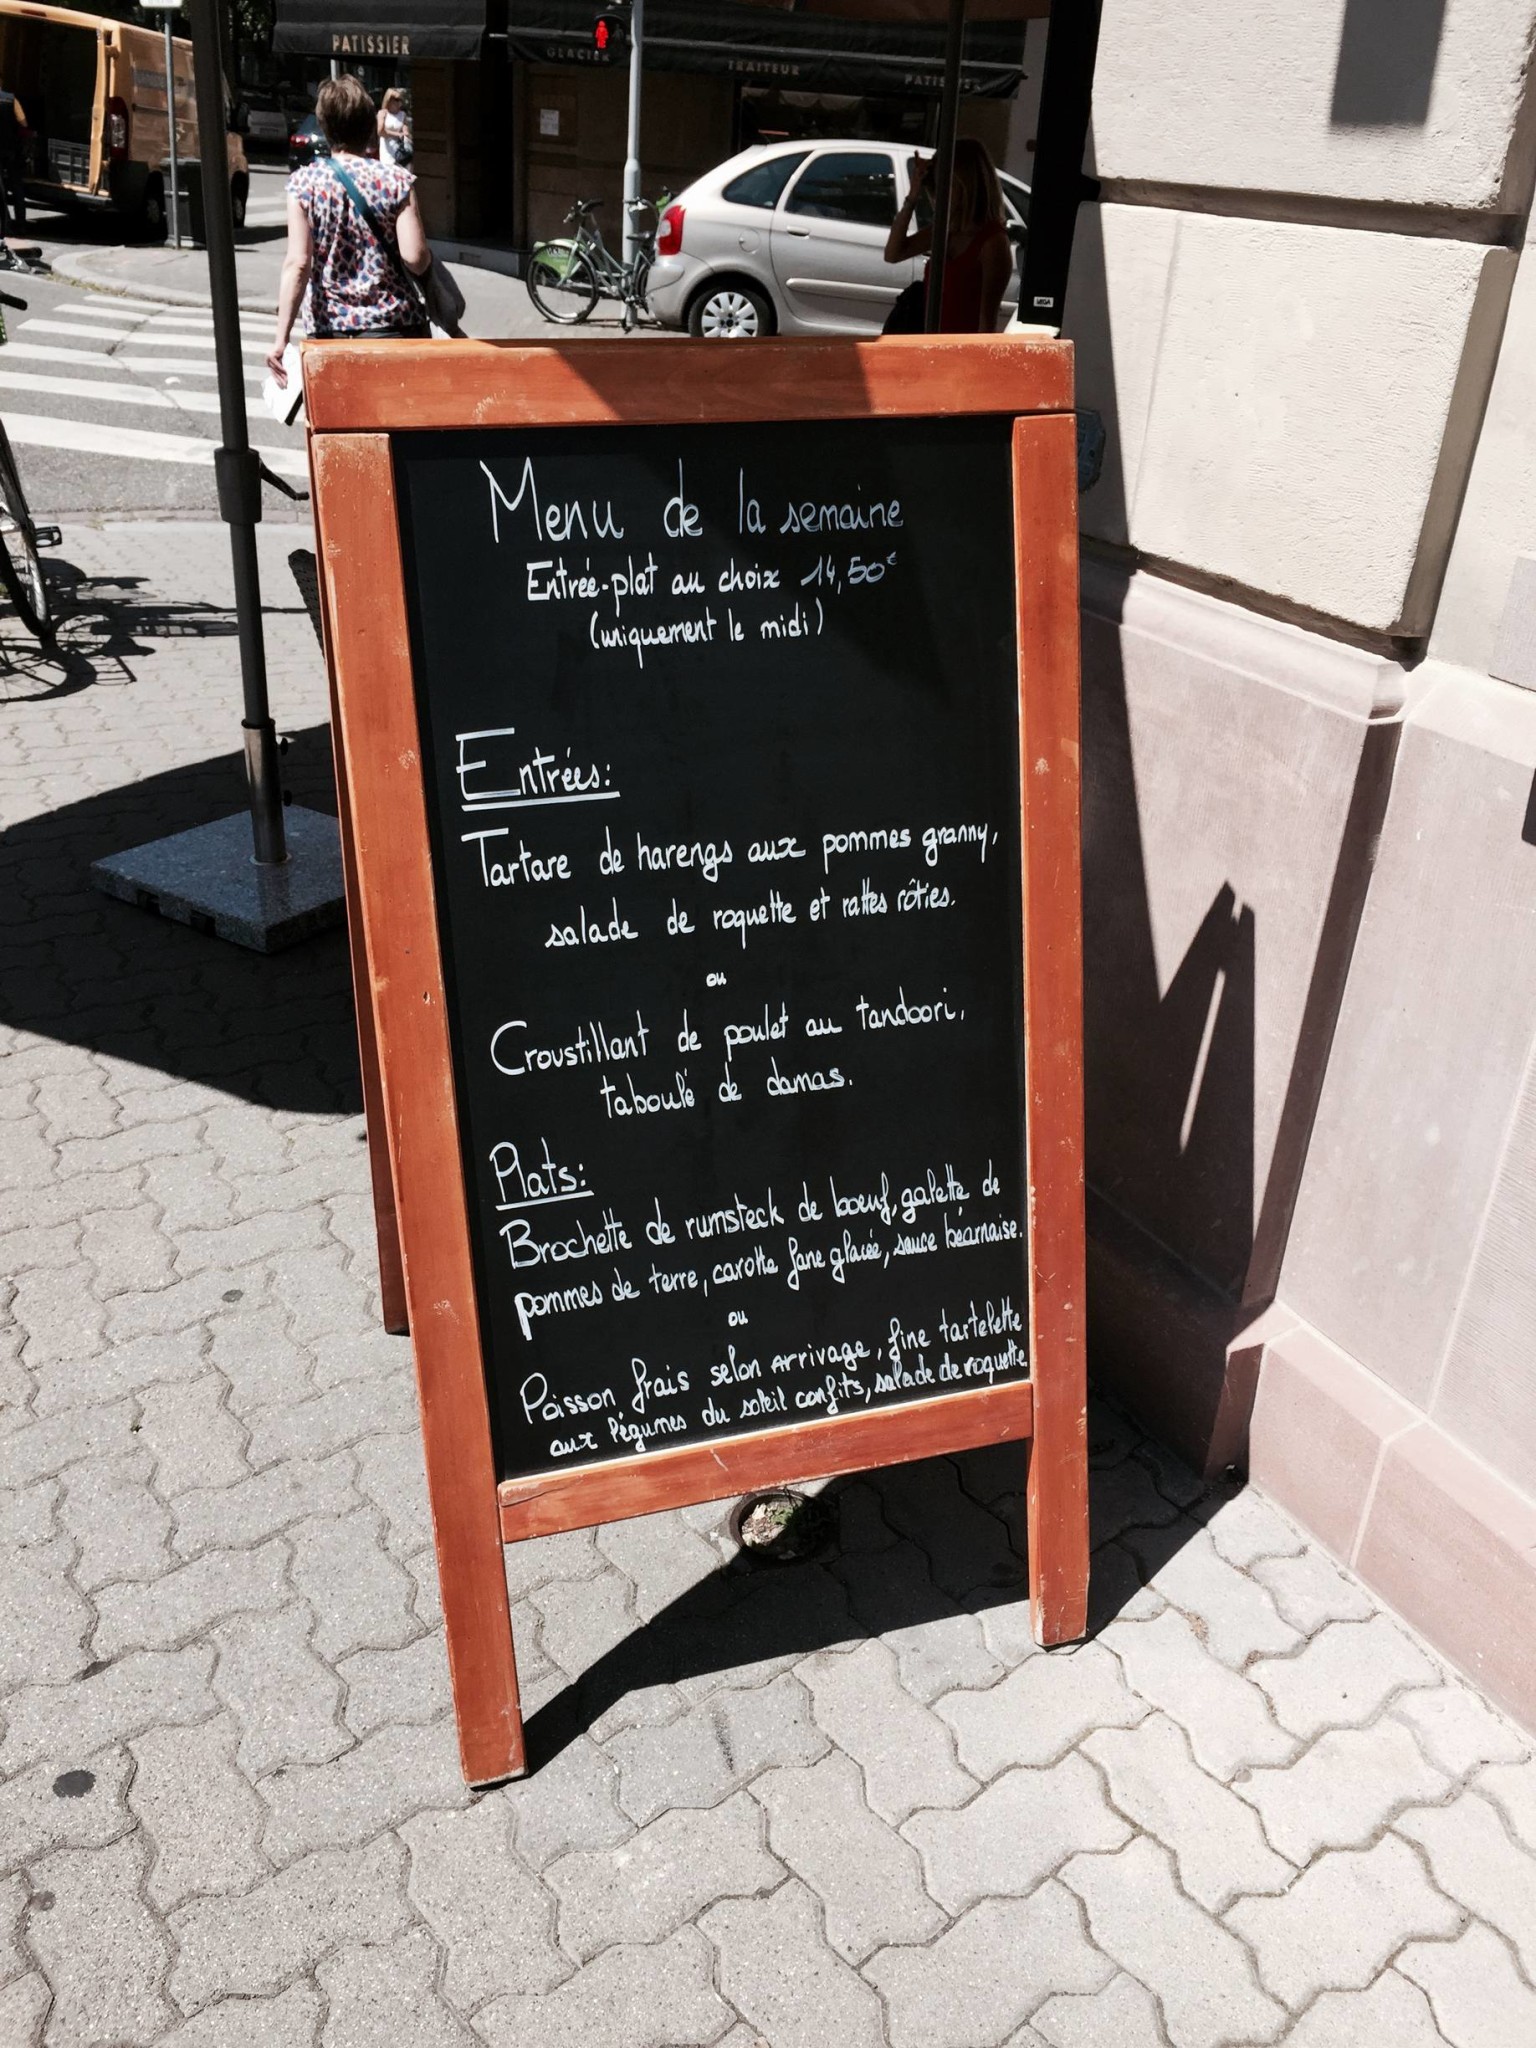 PATISSIER
GLACIER
TRAITEUR
PATISSIER
VEGA
Menu de la semaine
Entrée-plat au choix 14,50€
(uniquement le midi)
Entrées:
Tartare de harengs aux pommes granny,
salade de roquette et rattes rôties.
ou
Croustillant de poulet au tandoori,
taboulé de damas.
Plats:
Brochette de rumsteck de boeuf, galette de
pommes de terre, carotte fane glacée, sauce béarnaise.
ou
Poisson frais selon arrivage, fine tartelette
aux légumes du soleil confits, salade de roquette